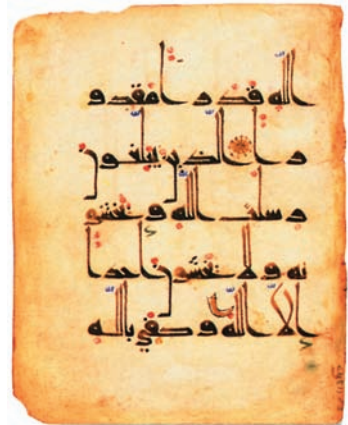 الله قدرا مقدو
را الذين يبلغون
رسلت الله ويخشو
نه ولا يخشون احدا
الا الله وكفى بالله